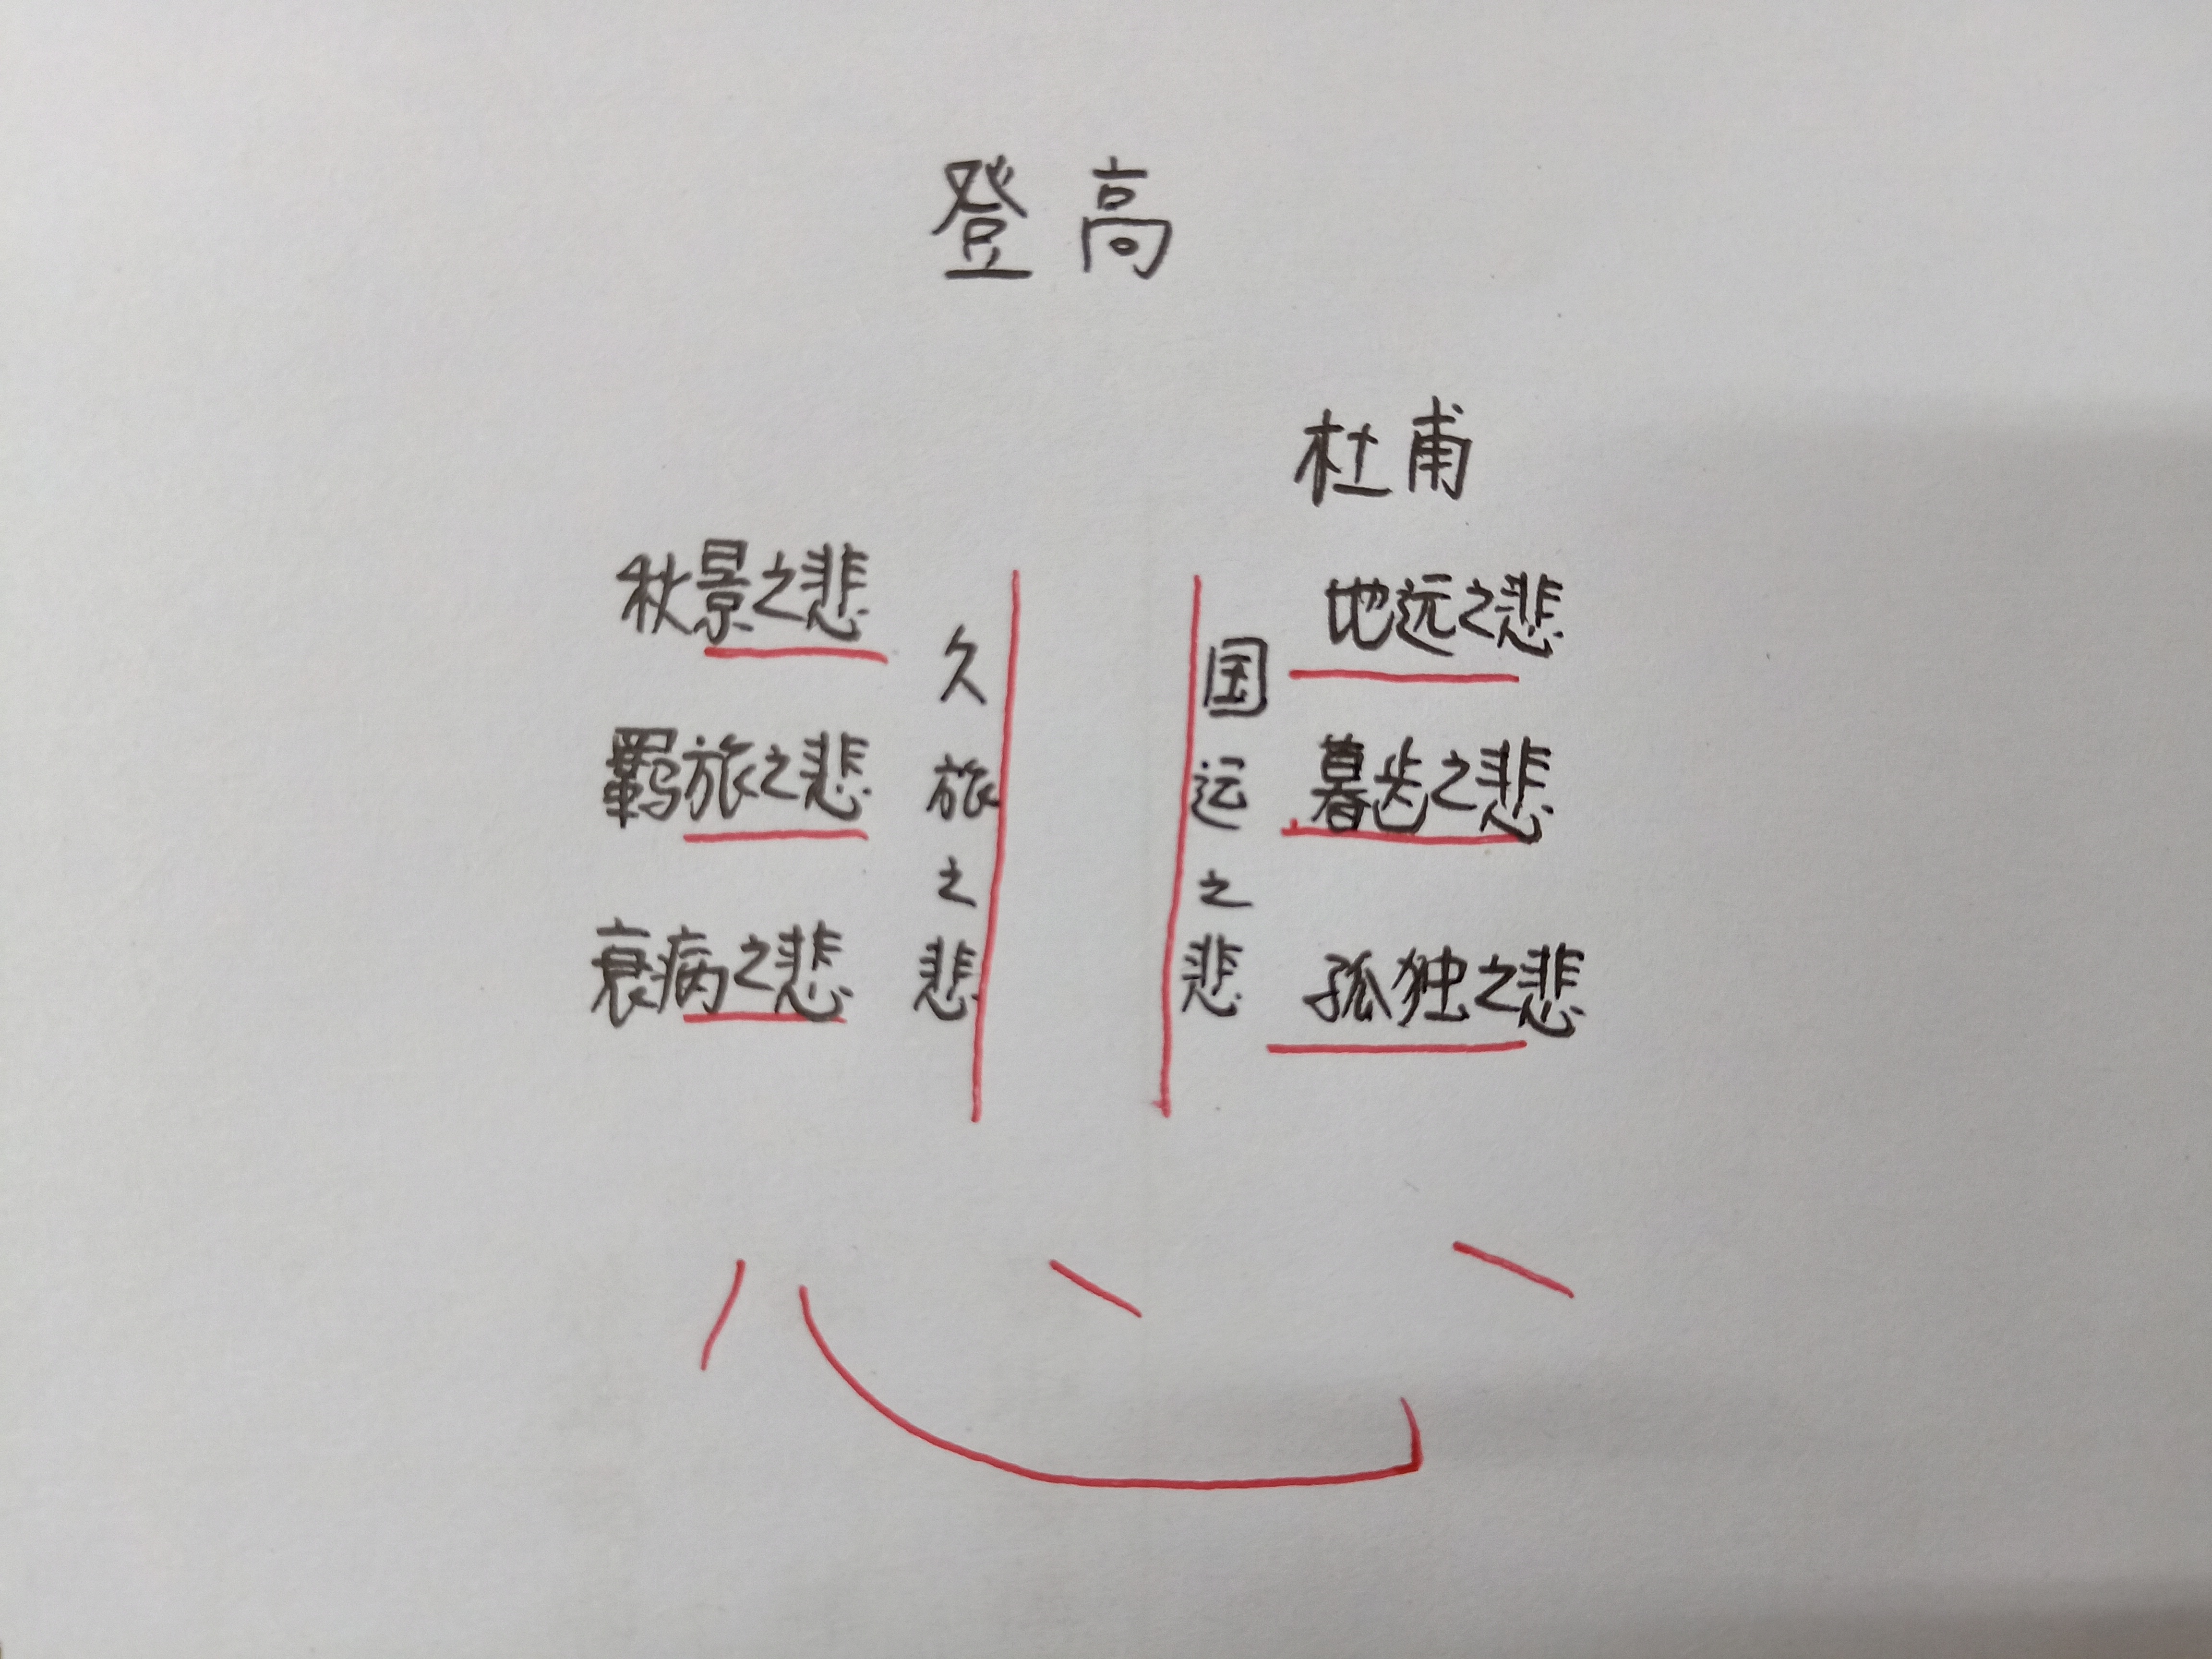 登高
杜甫
秋景之悲
羁旅之悲
衰病之悲
久旅之悲
国运之悲
地远之悲
暮齿之悲
孤独之悲